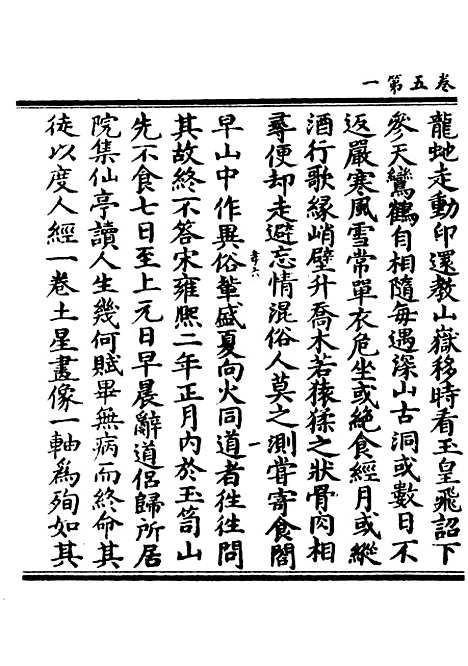 卷五第一
龍虵走動印還教山嶽移時看玉皇飛詔下
參天鸞鶴自相隨每遇深山古洞或數日不
返嚴寒風雪常單衣危坐或絶食經月或縱
酒行歌緣峭壁升喬木若猿猱之狀骨肉相
尋便却走避忘情混俗人莫之測嘗寄食閤
早山中作異俗輩盛夏向火同道者徃徃問
其故終不答宋雍熙二年正月内於玉笥山
先不食七日至上元日早晨辭道侶歸所居
院集仙亭讀人生幾何賦畢無病而終命其
徒以度人經一卷土星畫像一軸爲殉如其